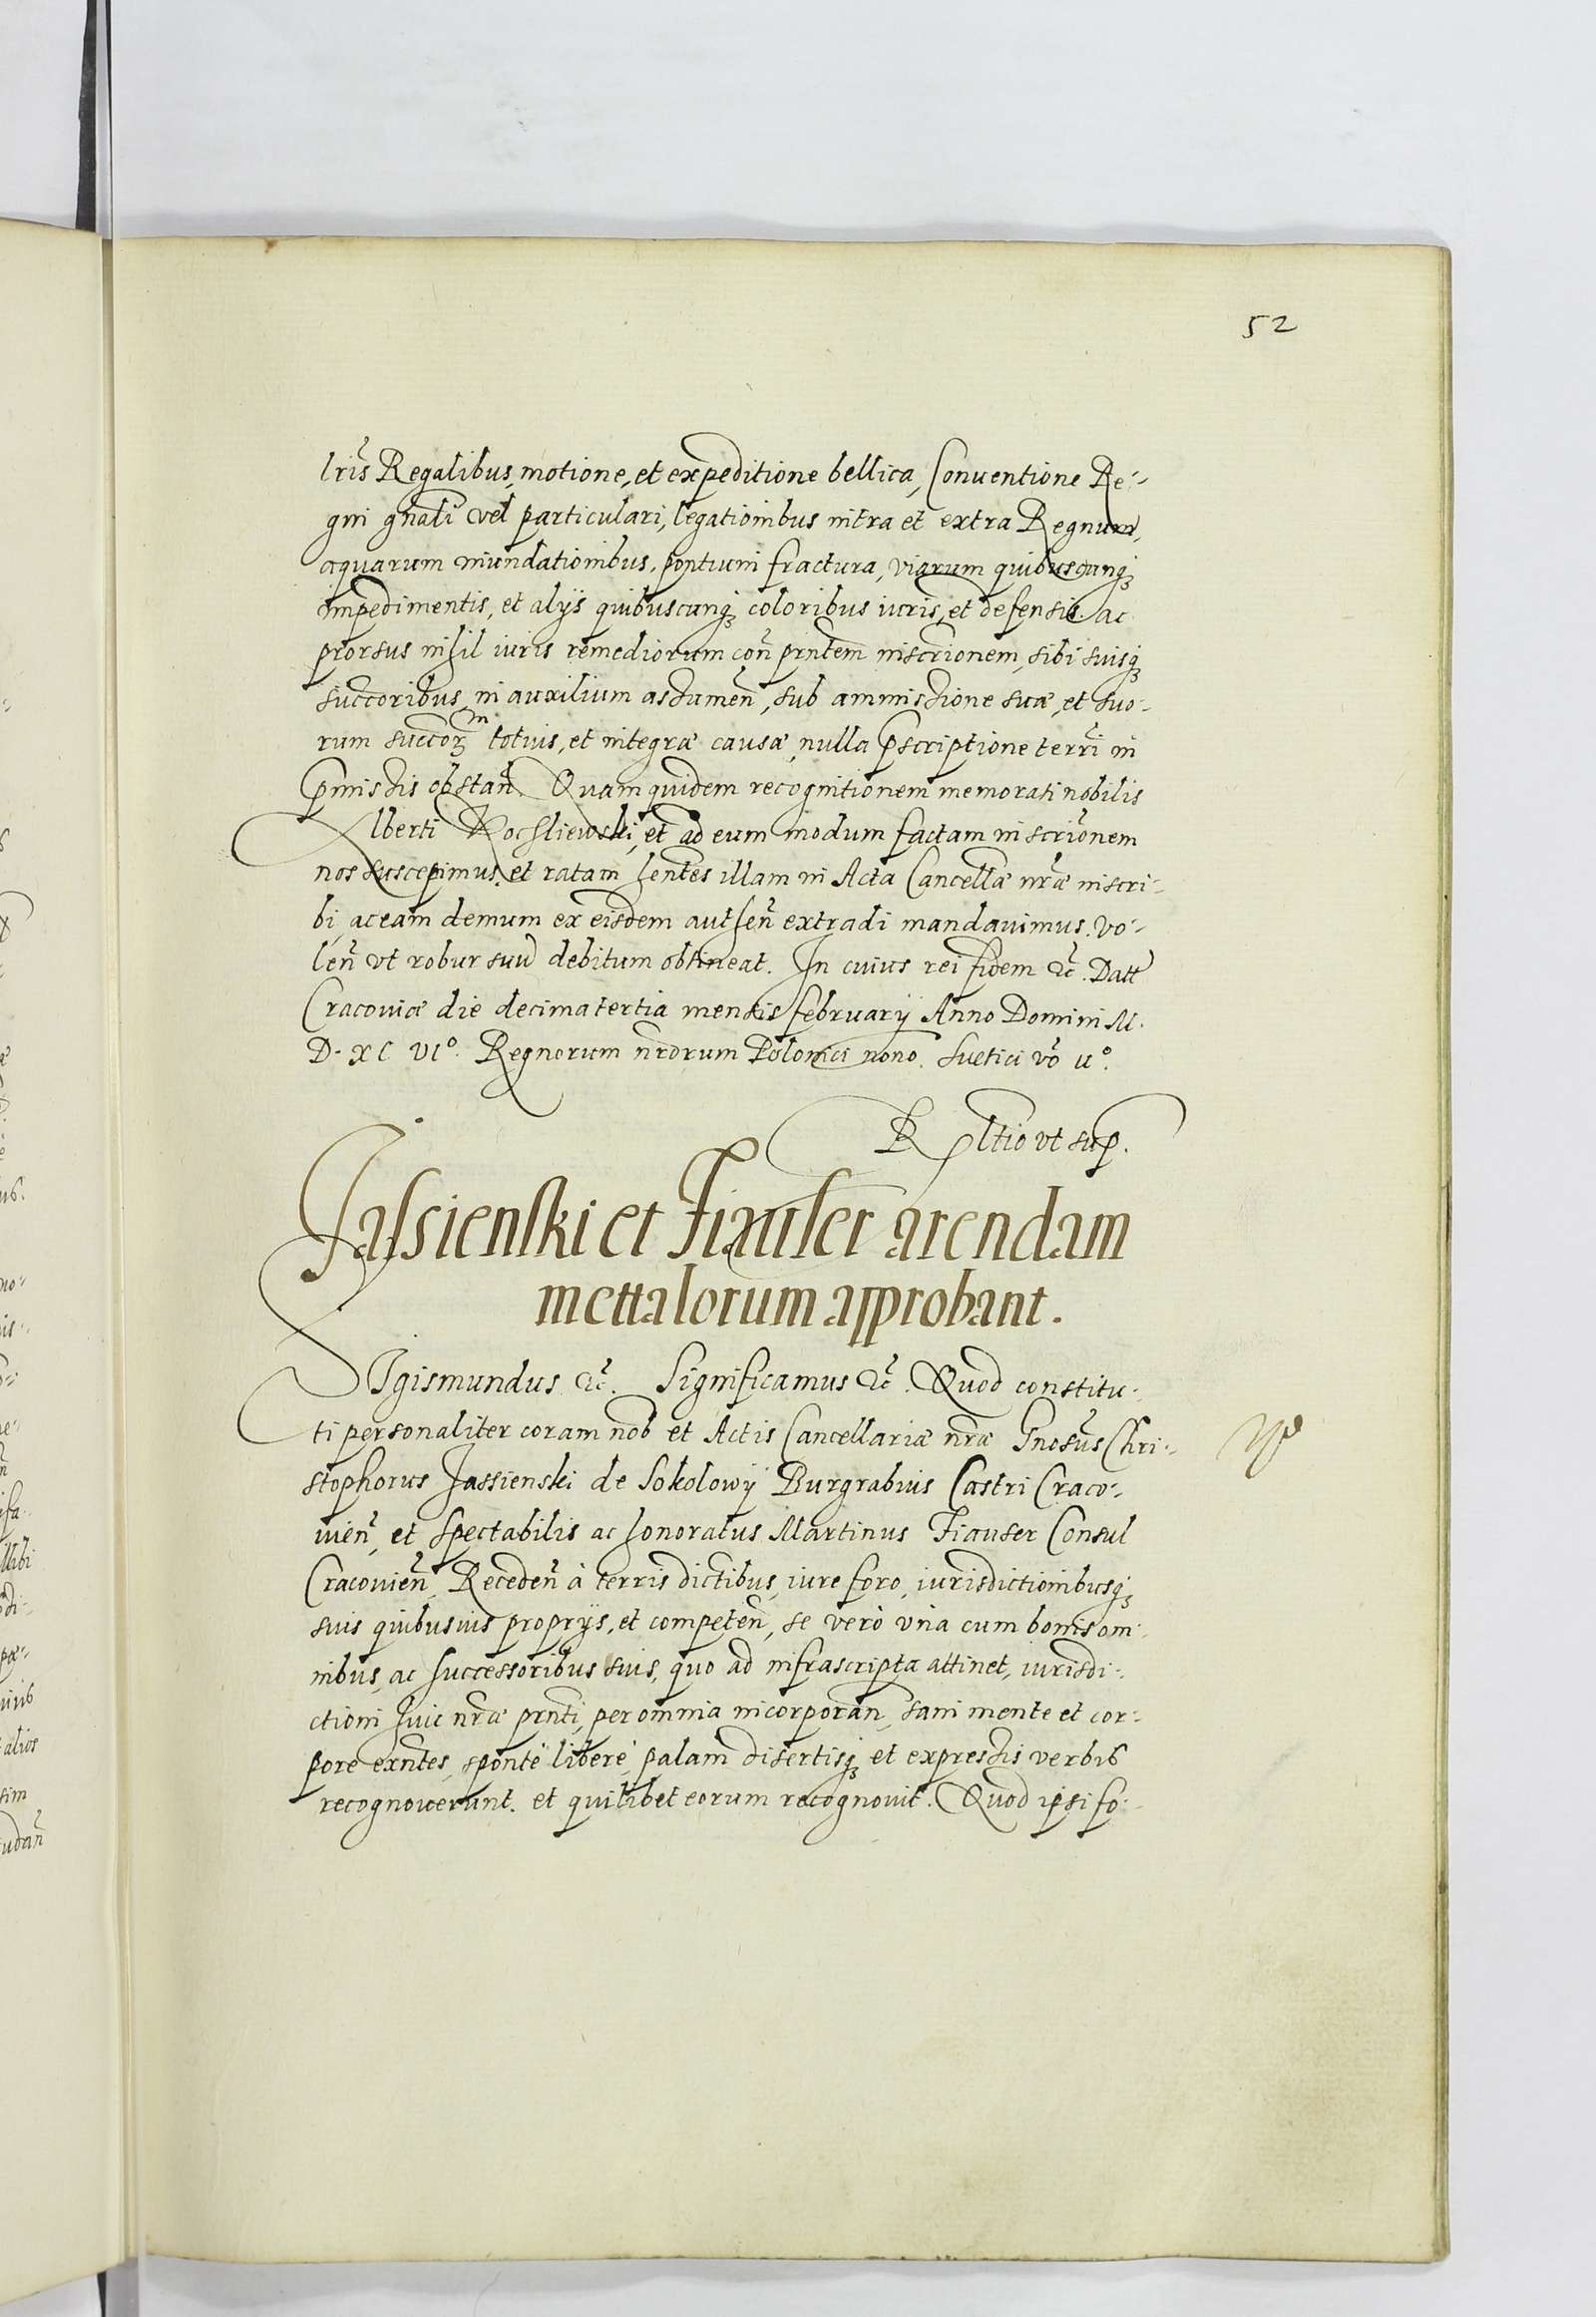 52
lris̃ Regalibus, motione, et expeditione bellica, Conuentione Re-
gni gñali vel particulari, legationibus intra et extra Regnum,
aquarum inundationibus, pontium fractura, viarum quibuscunq₃
impedimentis, et alijs quibuscunq₃ coloribus iuris, et defensis ac
prorsus nihil iuris remediorum con̄ prñtem inscrionem, sibi suisq₃
succoribus, in auxilium assumeñ, sub ammissione suæ, et suo-
rum succorꝫ totius, et integræ causæ, nulla p̃scriptione terri in
p̃missis obstañ. Quam quidem recognitionem memorati nobilis
Alberti Kochliewski, et ad eum modum factam inscrionem
nos suscepimus, et ratam hentes illam in Acta Cancellæ nr̃æ inscri-
bi, ac eam demum ex eisdem autheñ extradi mandauimus. vo-
leñ vt robur suũ debitum obtineat. In cuius rei fidem &c̃. Datt
Cracouiæ die decima tertia mensis february Anno Domini M.
D. XC VIº. Regnorum nr̃orum Poloniei nono. Suetici vº̃ uº.
Rltio vt sup.
Jassienski et Fiauser arendam
mettalorum approbant.
SIgismundus &c̃. Significamus &c̃. Quod constitu-
ti personaliter coram nob et Actis Cancellariæ nr̃æ Gnosus̃ Chri-
stophorus Jassienski de Sokolowy Burgrabius Castri Craco-
uieñ, et Spectabilis ac honoratus Martinus Fiauser Consul
Cracouieñ, Recedeñ à terris dictibus, iure foro, iurisdictionibusq₃
suis quibusuis proprijs, et competeñ, se verò vnà cum bonis om-
nibus, ac successoribus suis, quo ad infrascripta attinet, iurisdi-
ctioni huic nr̃æ prñti, per omnia incorporañ, sani mente et cor-
pore exñtes, spontè liberè, palam disertisq₃ et expressis verbis
recognouerunt. et quilibet eorum recognouit. Quod ipsi fo-